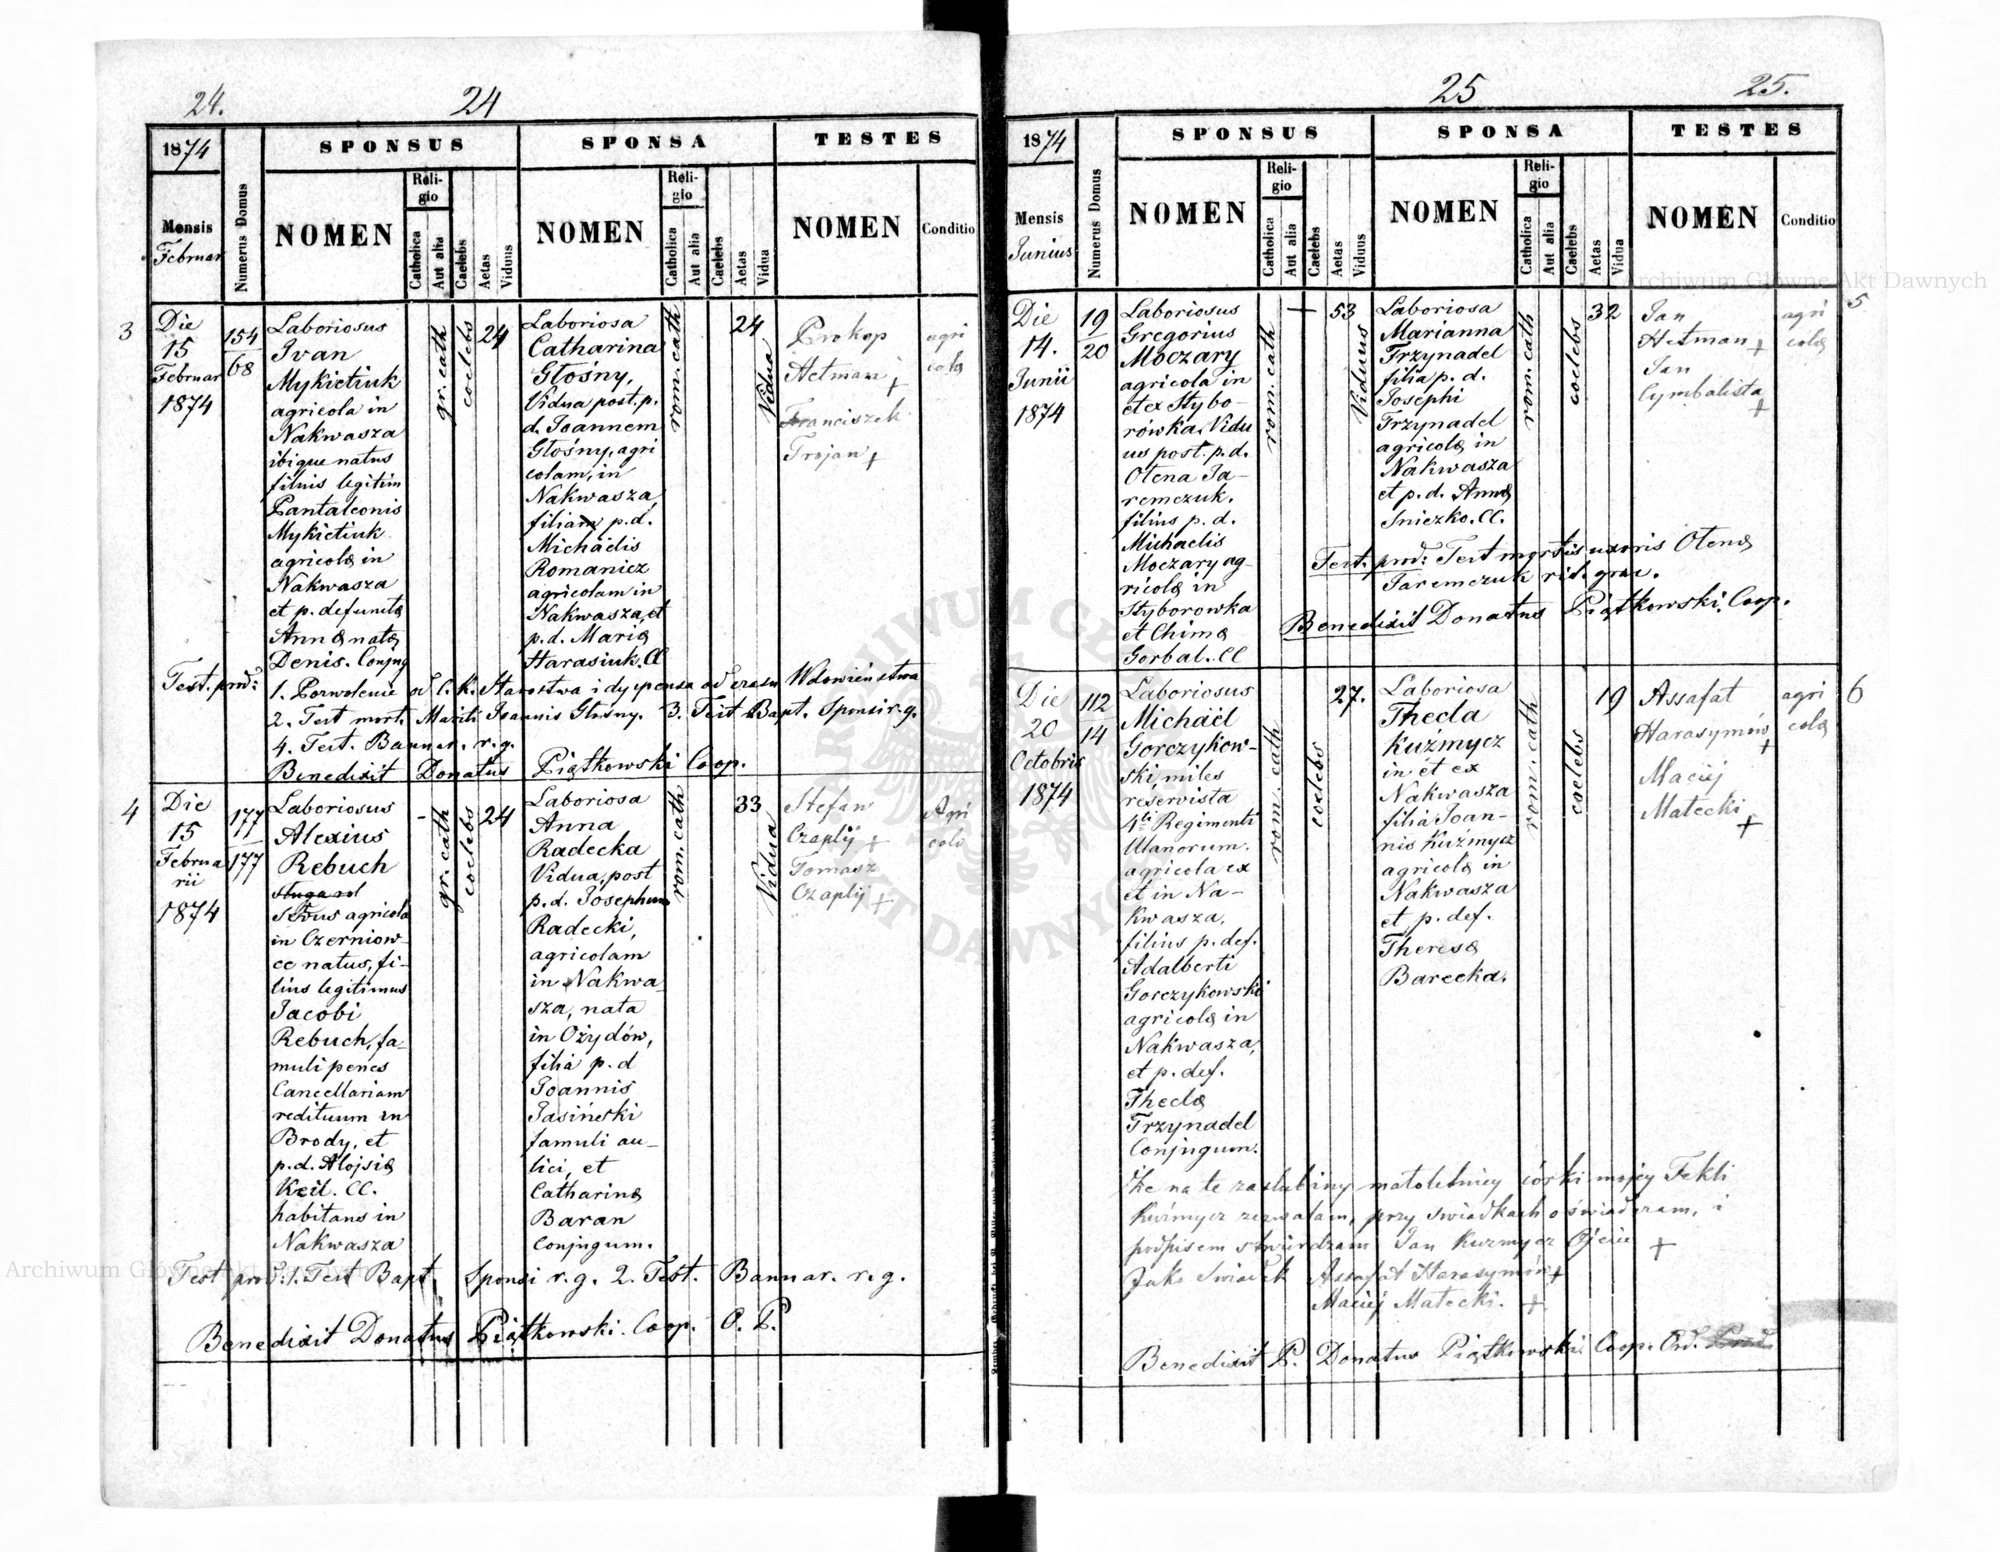 24.
24
1874
Mensis
Februar
Numerus Domus
SPONSUS
NOMEN
Religio
Catholica
Aut alia
Caelebs
Aetas
Viduus
SPONSA
NOMEN
Religio
Catholica
Aut alia
Caelebs
Aetas
Vidua
TESTES
NOMEN
Conditio
3
Die
15
Februar
1874
154
68
Laboriosus
Ivan
Mykietiuk
agricola in
Nakwasza
ibique natus
filius legitim
Pantaleonis
Mykietiuk
agricolæ in
Nakwasza
et p. defunctæ
Annæ natæ
Denis. Conjug
gr. cath
coelebs
24
Laboriosa
Catharina
Głośny,
Vidua post. p.
d. Joannem
Głośny, agri
colam, in
Nakwasza,
filiam p.d.
Michäelis
Romanicz
agricolam in
Nakwasza, et
p.d. Mariæ
Harasiuk. CC
rom. cath
24
Vidua
Prokop
Hetman +
Franciszek
Trojan +
agri
colæ
Test. prod:
1. Pozwolenie od C. K. Starostwa i dyspensa od czasu Wdowieństwa
2. Test mort. Mariti Joannis Głośny. 3. Test. Bapt. Sponsi r. g.
4. Test. Bannar. r. g.
Benedixit Donatus Piątkowski Coop.
4
Die
15
Februa
rii
1874
177
177
Laboriosus
Alexius
Rebuch
agricola
in Czerniow
ce natus, fi-
lius legitimus
Jacobi
Rebuch, fa-
muli penes
Cancellariam
redituum in
Brody, et
p.d. Alojsiæ
Keil. CC.
habitans in
Nakwasza
-
gr. cath
coelebs
24
Laboriosa
Anna
Radecka
Vidua, post
p.d. Josephum
Radecki,
agricolam
in Nakwa
sza, nata
in Ożydów,
filia p. d
Joannis
Jasiński
famuli au-
lici, et
Catharinæ
Baran
Conjugum.
rom. cath
33
Vidua
Stefan
Czaplij +
Tomasz
Czaplij +
Agri
colæ
Test prod: 1. Test Bapt. Sponsi r. g. 2. Test. Bannar. r. g.
Benedixit Donatus Piątkowski. Coop. O. P.
25
25.
1874
Mensis
Junius
Numerus Domus
SPONSUS
NOMEN
Religio
Catholica
Aut alia
Caelebs
Aetas
Viduus
SPONSA
NOMEN
Religio
Catholica
Aut alia
Caelebs
Aetas
Vidua
TESTES
NOMEN
Conditio
Die
14.
Junii
1874
19
20
Laboriosus
Gregorius
Moczary
agricola in
et ex Stybo-
rówka, Vidu
us post. p.d.
Olena Ja-
remczuk.
filius p. d.
Michaelis
Moczary ag-
ricolæ in
Styborowka
et Chimæ
Gorbal. CC
rom. cath
53
Viduus
Laboriosa
Marianna
Trzynadel
filia p. d.
Josephi
Trzynadel
agricolæ in
Nakwasza
et p. d. Annæ
Sniezko. CC.
rom. cath
coelebs
32
Jan
Hetman +
Jan
Cymbalista
+
agri
colæ
5
Test. prod: Test mortis uxoris Olenæ
Jaremczuk rit. graec.
Benedixit Donatus Piątkowski, Coop.
Die
20
Octobris
1874
112
14
Laboriosus
Michäel
Gorczykow-
ski miles
reservista
4ti Regimenti
Ulanorum.
agricola ex
et in Na-
kwasza,
filius p. def.
Adalberti
Gorczykowski
agricolæ in
Nakwasza,
et p. def.
Theclæ
Trzynadel
Conjugum.
rom. cath
coelebs
27.
Laboriosa
Thecla
Kuźmycz
in et ex
Nakwasza
filia Joan-
nis Kuźmycz
agricolæ in
Nakwasza
et p. def.
Theresæ
Barecka.
rom. cath
coelebs
19
Assafat
Harasymów
+
Maciej
Małecki
+
agri
colæ
6
Że na te zaślubiny małoletniey córki mojey Tekli
Kuźmycz zezwalam, przy świadkach oświadczam, i
podpisem stwierdzam Jan Kuzmycz Ojciec +
Jako Świadek Assafat Harasymów +
Maciej Małecki. +
Benedixit P. Donatus Piątkowski Coop. Ord.
Archiwum Główne Akt Dawnych
Archiwum Główne Akt Dawnych
ARCHIWUM GŁÓWNE AKT DAWNYCH